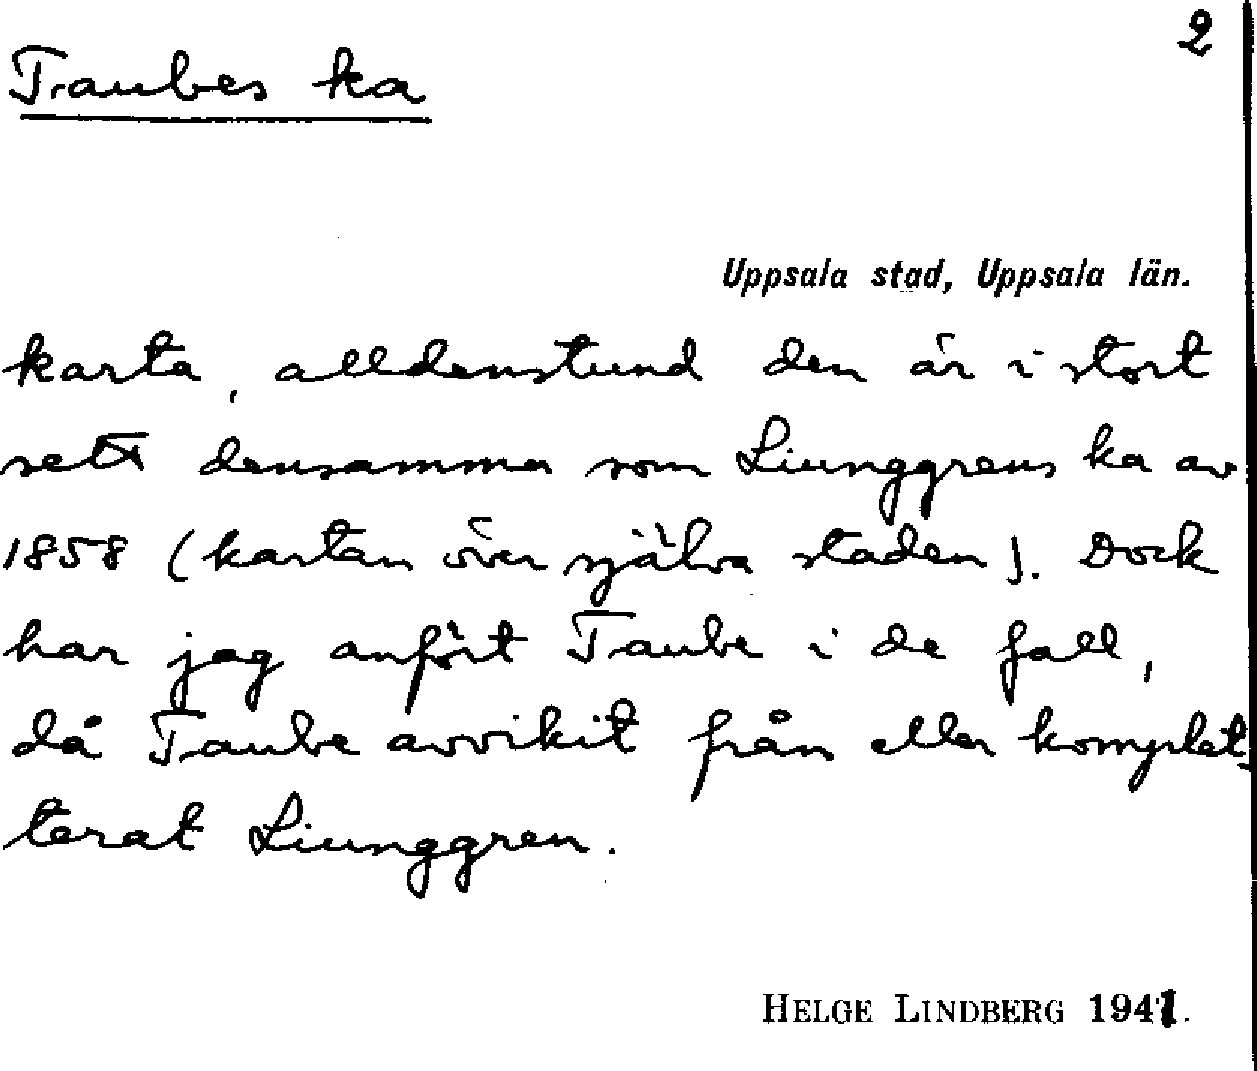 2
Taubes ka
Uppsala stad, Uppsala län.
karta, alldenstund den är i stort
sett densamma som Liunggrens ka av
1858 (kartan över själva staden). Dock
har jag anfört Taube i de fall,
då Taube avvikit från eller komplet-
terat Liunggren.
HELGE LINDBERG 1941.